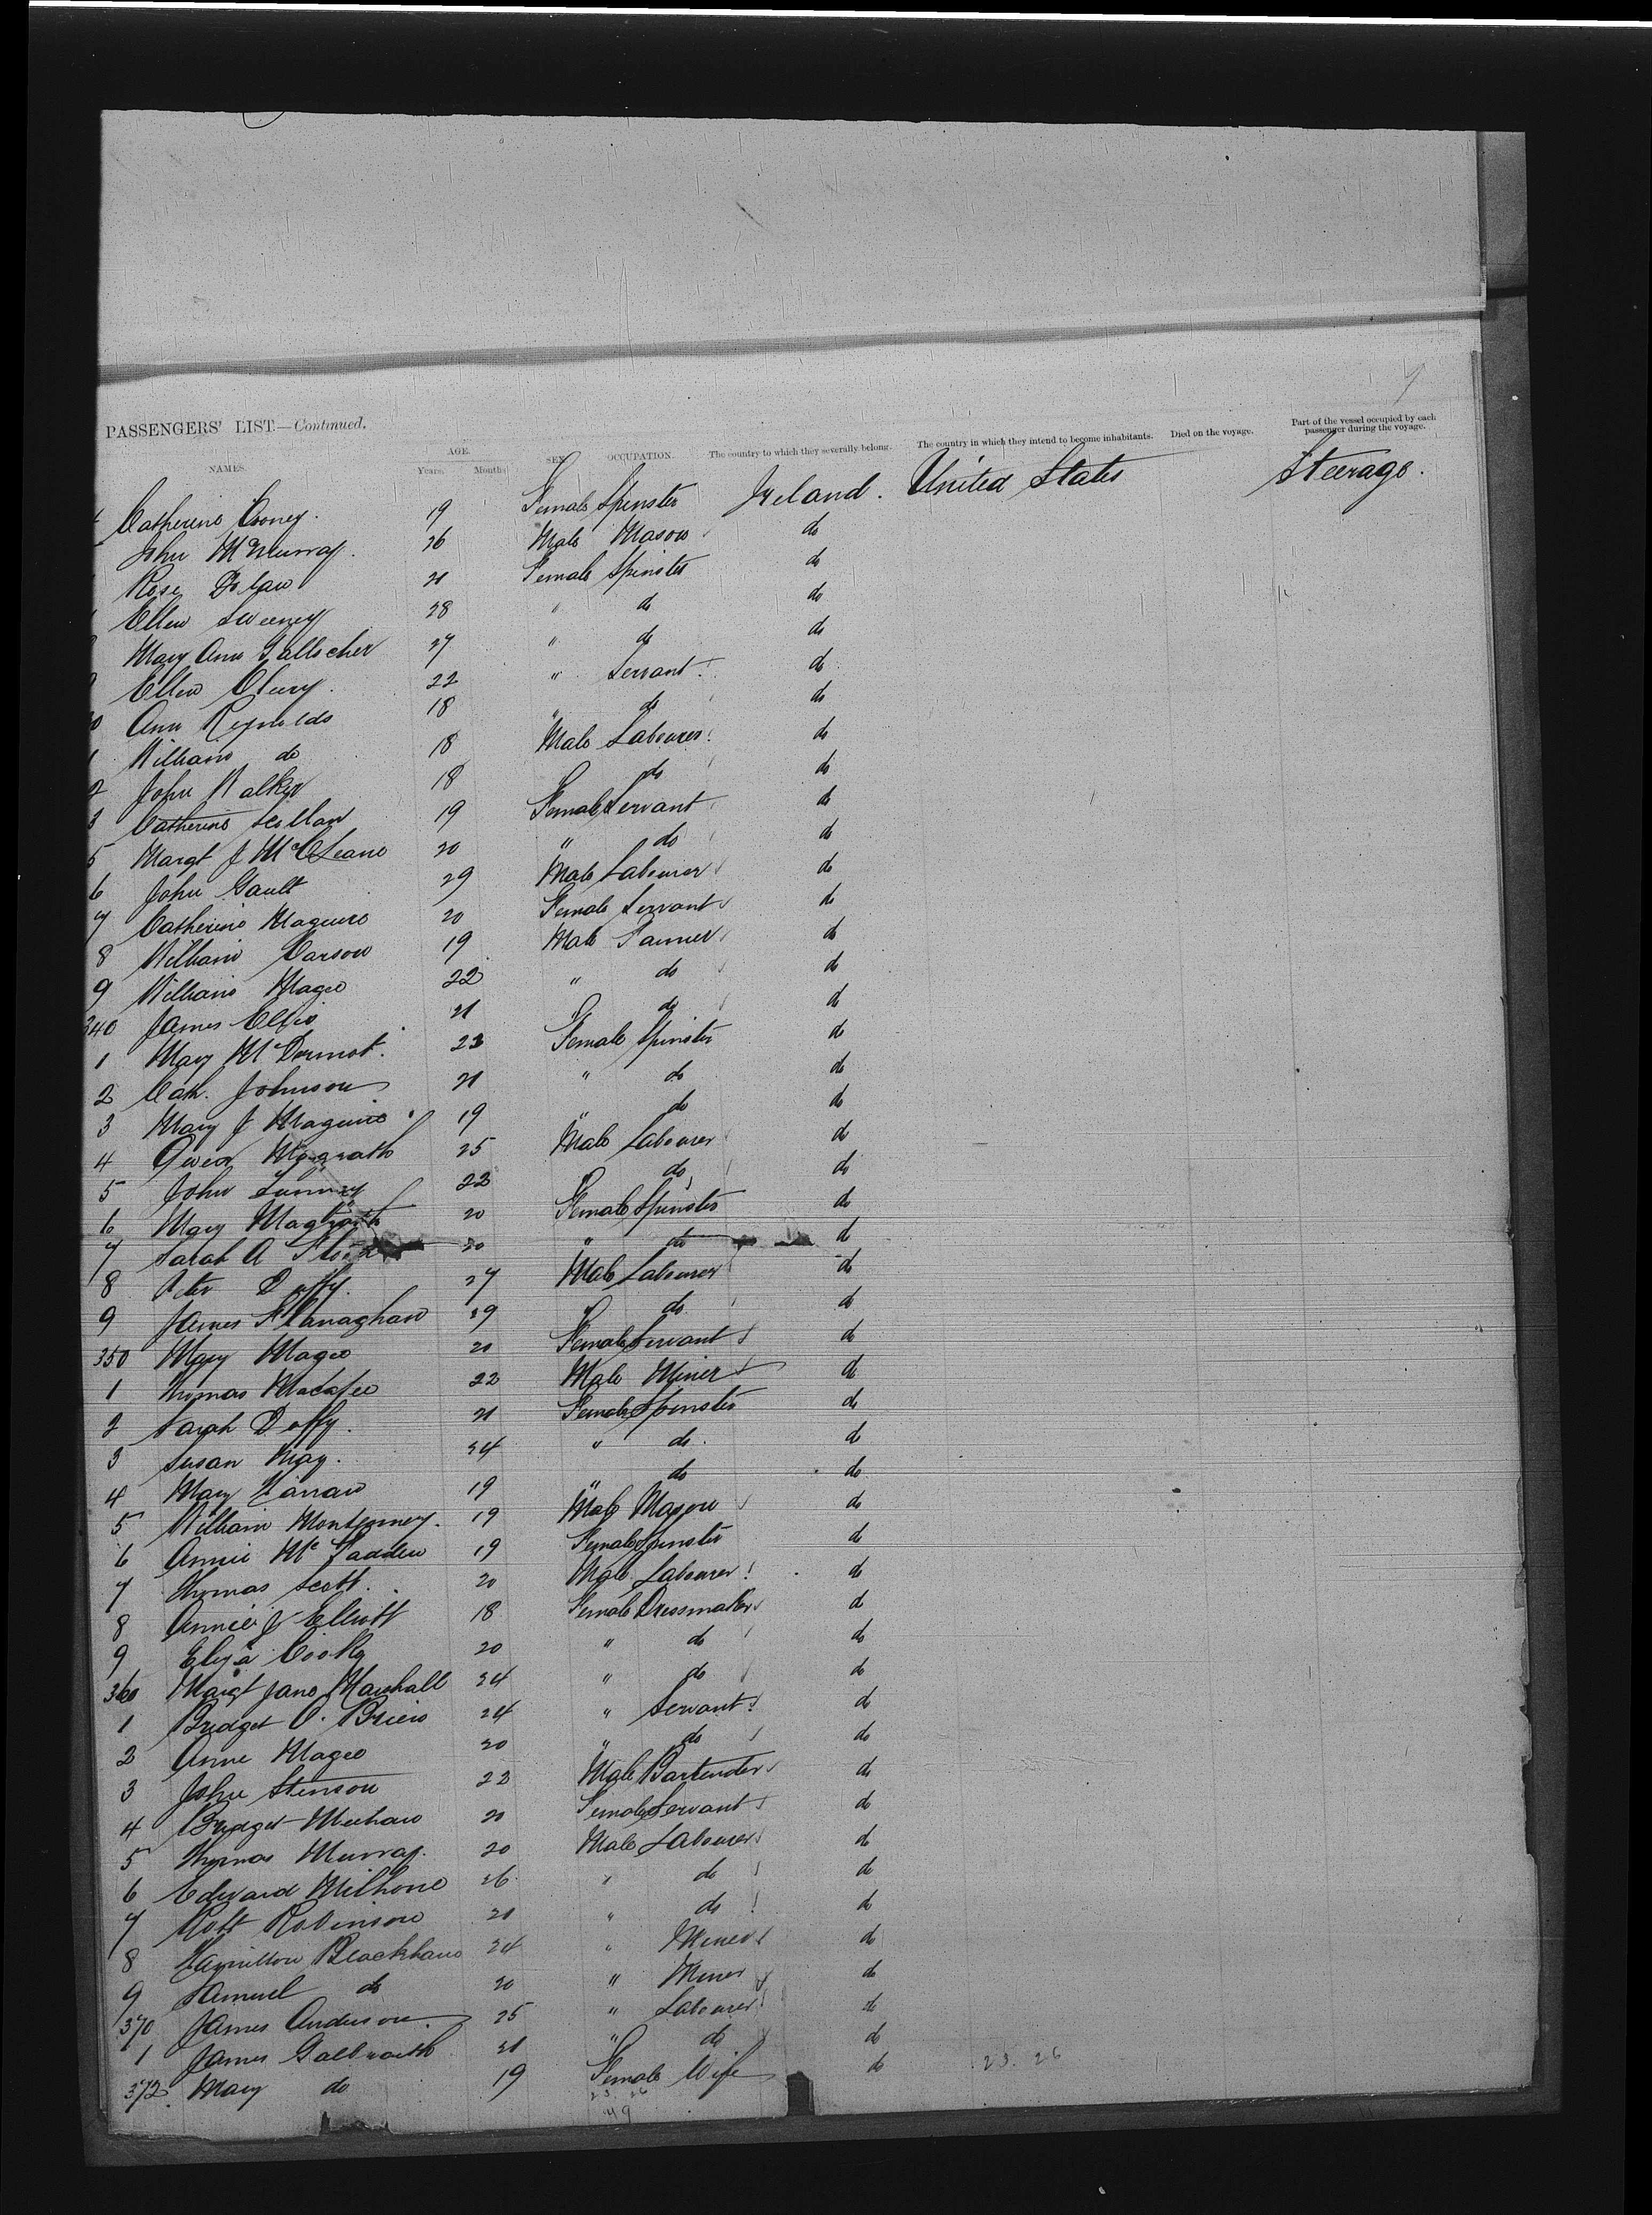 PASSENGERS' LIST.—Continued.
NAMES. AGE. Years. Months. SEX. OCCUPATION. The country to which they severally belong. The country in which they intend to become inhabitants. Died on the voyage. Part of the vessel occupied by each passenger during the voyage.
Catherine Cooney. 19 Female Spinster Ireland. United States Steerage.
John McMurray. 26 Male Mason do
Rose Dolan 21 Female Spinster do
Ellen Sweeney 28 " do do
Mary Ann Gallocher 27 " do do
Ellen Clury. 22 " Servant do
Ann Reynolds 18 " do do
1 William do 18 Male Labourer do
2 John Walker 18 do do
3 Catherine Scollan 19 Female Servant do
5 Margt J McCleane 20 " do do
6 John Gault 29 Male Labourer do
7 Catherine Maguire 20 Female Servant do
8 William Carson 19 Male Farmer do
9 William Magee 22 " do do
340 James Elliot 21 do do
1 Mary McDermot. 23 Female Spinster do
2 Cath. Johnson 21 " do do
3 Mary J Maguire 19 " do do
4 Owen Magrath 25 Male Labourer do
5 John 22 do do
6 Mary Magrath 20 Female Spinster do
7 Sarah A 20 " do do
8 Peter Duffy. 27 Male Labourer do
9 James Flanaghan 19 do do
350 Mary Magee 21 Female Servant do
1 Thomas Macafee 22 Male Miner do
2 Sarah Duffy. 21 Female Spinster do
3 Susan May. 24 " do. do
4 Mary Farran 19 " do do
5 William Montgomery. 19 Male Mason do
6 Annie McFadden 19 Female Spinster do
7 Thomas Scott. 20 Male Labourer do
8 Annie J Elliott 18 Female Dressmaker do
9 Eliza Cooke 20 " do do
360 Margt Jane Marshall 24 " do do
1 Bridget O'Brien 24 " Servant do
2 Anne Magee 20 " do do
3 John Stenson 22 Male Bartender do
4 Bridget Meehan 20 Female Servant do
5 Thomas Murray. 20 Male Labourer do
6 Edward Milhone 26 " do do
7 Robt Robinson 21 " do do
8 Hamilton Blackham 24 " Miner do
9 Samuel do 20 " Miner do
370 James Anderson. 25 " Labourer do
1 James Galbraith 21 " do do
372. Mary do 19 Female Wife do 23. 26
23. 26
49